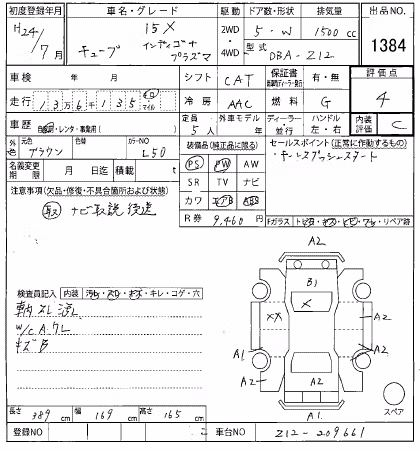 初度登録年月 車名・グレード 駆動 ドア数・形状 排気量 出品NO
H24/7月 キューブ 15X インディゴナ プラズマ 2WD 4WD 5・W 1500cc 1384
型式 DBA-Z12
車検 年 月 シフト CAT 保証書 有・無 評価点
走行 13万6千135 キロ マイル 冷房 AAC 燃料 G 4
車歴 自家用・レンタ・事業用( ) 定員 5人 外車モデル 年 ディーラー 並行 ハンドル 左・右 内装評価 C
外色 元色 ブラウン 色替 カラーNO L50 装備品(純正品に限る) セールスポイント(正常に作動するもの)
PS PW AW ・キーレスプッシュスタート
名義変更期限 月 日迄 積載 t SR TV ナビ
注意事項(欠品・修復・不具合箇所および状態) カワ エアB ABS
取 ナビ取説後送 R券 9,460円
Fガラス トビ・キズ・ヒビ・ワレ・リペア跡
A2
B1
検査員記入 内装 汚れ・スレ・キズ・キレ・コゲ・穴
X
XX A2
W/C Aクレ
キズB
A1 A1
A2 A2 A2
A1
スペア
長さ 389cm 幅 169cm 高さ 165cm
登録NO 車台NO Z12-209661